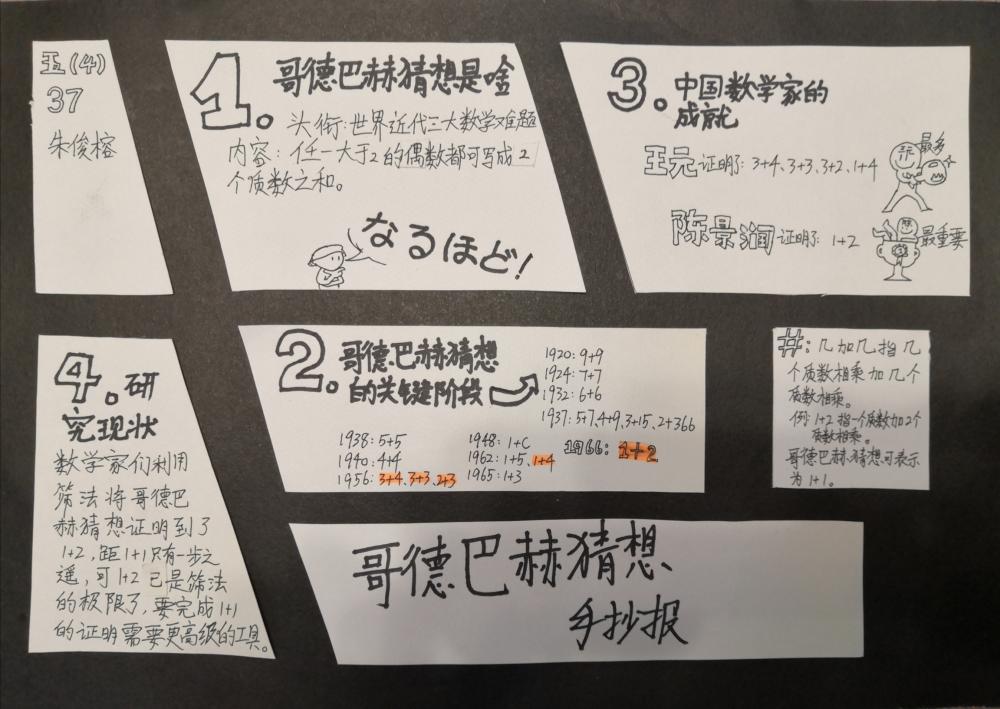 五(4)
37
朱俊榕
1.
哥德巴赫猜想是啥
头衔:世界近代三大数学难题
内容:任一大于2的偶数都可写成2
个质数之和。
なるほど!
3.
中国数学家的
成就
王元证明了3+4、3+3、3+2、1+4
最多
陈景润证明了1+2
最重要
4.研
究现状
数学家们利用
筛法将哥德巴
赫猜想证明到了
1+2,距1+1只有一步之
遥,可1+2已是筛法
的极限了,要完成1+1
的证明需要更高级的工具。
2.
哥德巴赫猜想
的关键阶段
1920:9+9
1924:7+7
1932:6+6
1937:5+7、4+9、3+15、2+366
1938:5+5
1940:4+4
1956:3+4、3+3、2+3
1948:1+C
1962:1+5、1+4
1965:1+3
1966:1+2
#:几加几指几
个质数相乘加几个
质数相乘。
例:1+2指一个质数加2个
质数相乘。
哥德巴赫猜想可表示
为1+1。
哥德巴赫猜想
手抄报